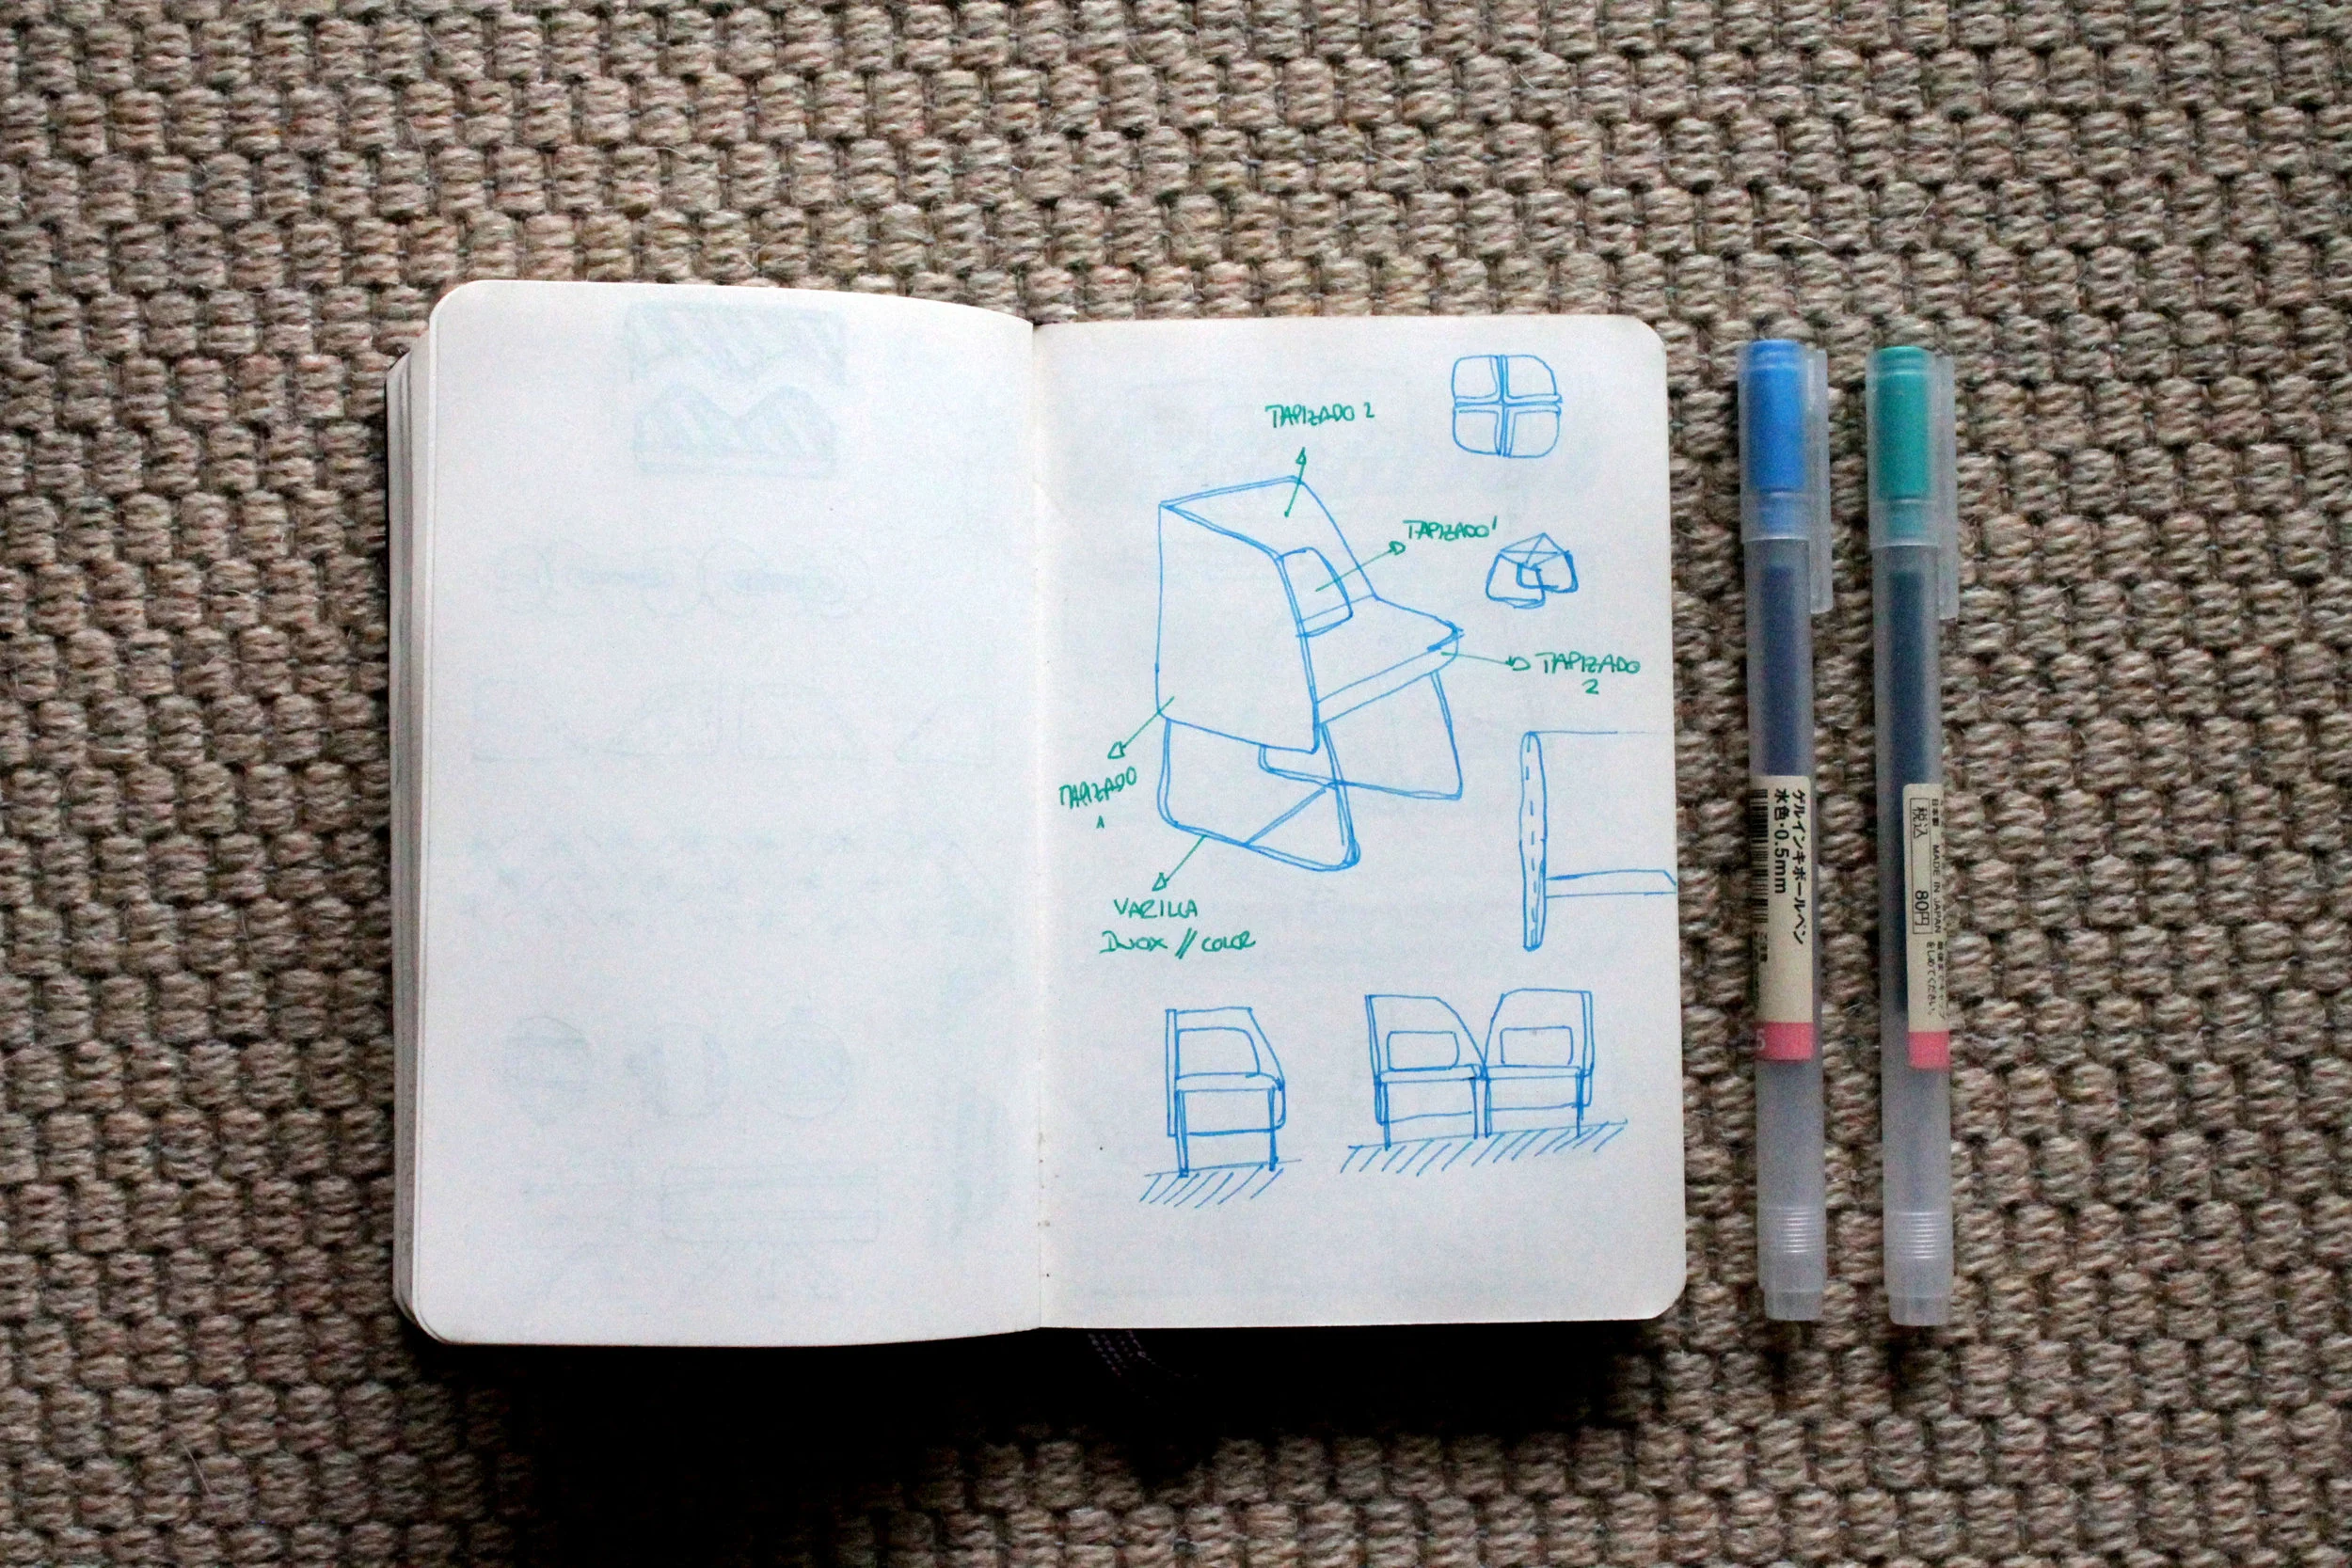 TAPIZADO 2
TAPIZADO 1
TAPIZADO
2
TAPIZADO
1
VARILLA
INOX // COLOR
ゲルインキボールペン
水色・0.5mm
5
日本製 MADE IN JAPAN
税込 80円
をしめてください。